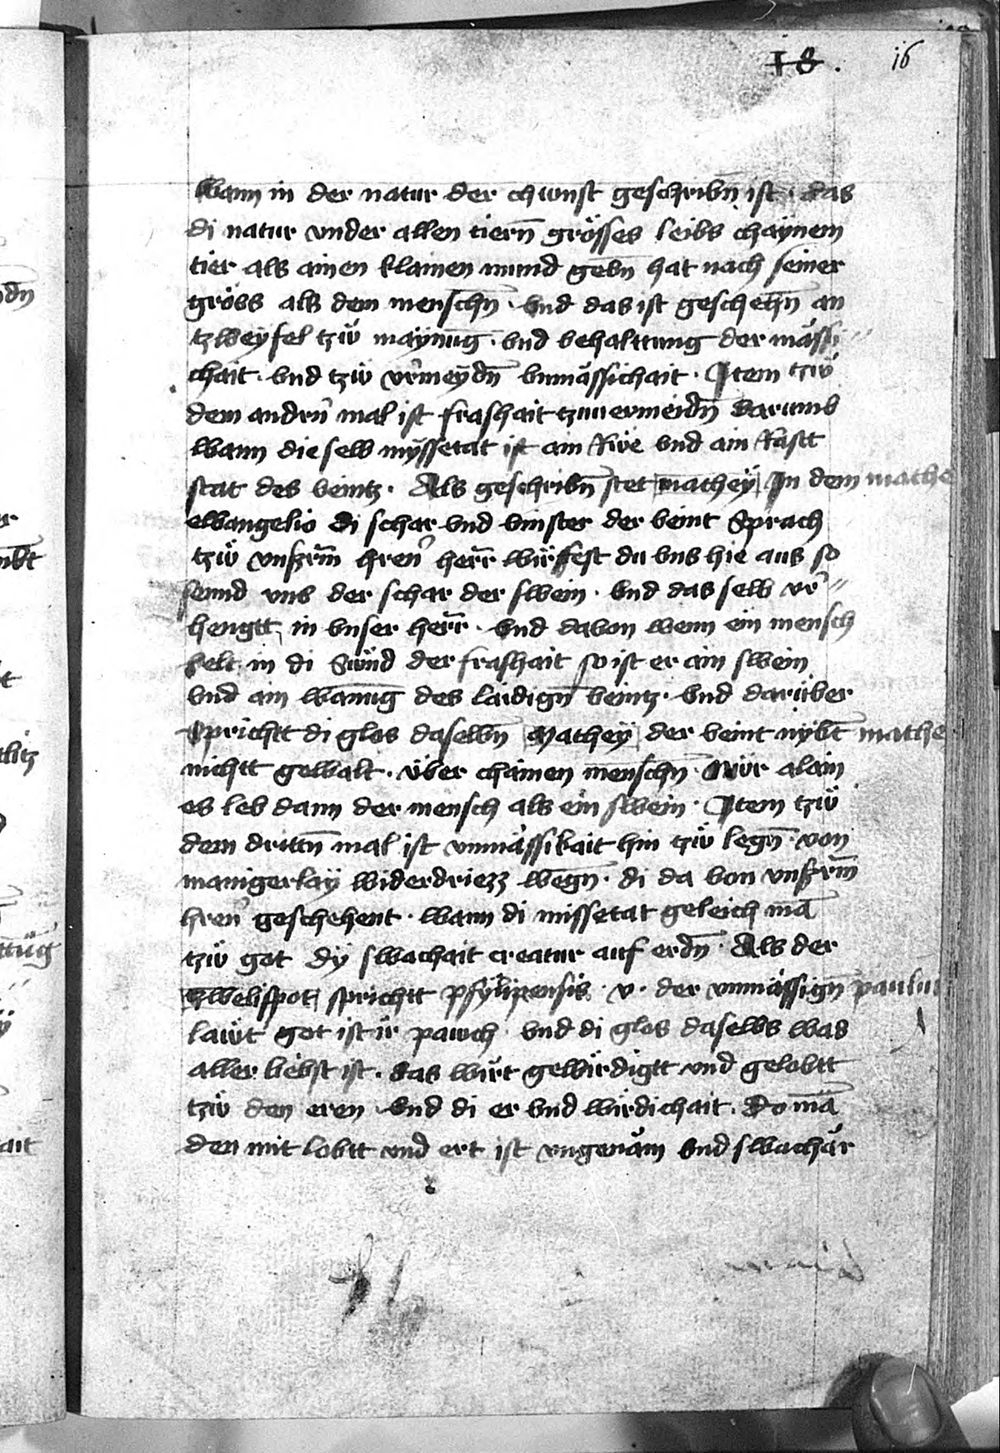 18. 16
wann in der natur der chunst geschribn̄ ist · das
di natur vnder allen tiern̄ grösses leibs chaÿnem
tier als ainen klainen mund gebn̄ hat nach seiner
gröss als dem menschn̄ · vnd das ist geschehn̄ an
tzweyfel tzw̎ maÿnūg · vnd behalttung der mässi〃
chait · vnd tzw̎ vʼmeÿdn̄ vnmässichait · Item tzw̎
dem andrn̄ mal ist frashait tzuuermeidn̄ darumb
wann die selb myssetat ist ain Rwe vnd ain Rastt
stat des veintz · Als geschribn̄ stet mathey In dem mathe
ewangelio Di schar vnd vinster der veint Sprach
tzw̎ vnßrm̄ hrenʼ herr̄ wirffest du vns hie aus so
sennd vns der schar der swein · vnd das selb vʼr〃
hengtt in vnser herr̄ · vnd dauon wenn ein mensch
velt in di Sw̎nd der frashait so ist er ain swein
vnd ain wanūg des laidign̄ veintz · vnd darüber
Sprichtt di glos daselbn̄ Mathey der veint nybt̄ mathe
nichtt gewalt · über chainen menschn̄ Nwr alain
es leb dann der mensch als ein swein · Item tzw̎
dem drittn̄ mal ist vnmässikait hin tzw̎ legn̄ · von
manigerlaÿ widerdriezz wegn̄ · di da von vnßrm̄
hrenʼ geschehent · wann di missetat geleich mā
tzw̎ got dÿ swachait creatur auf erdn̄ · Als der
tzwelifpot sprichtt pfylipensis · v · der vnmässign̄ paulus
law̎t got ist ir pawch · vnd di glos daselbs was
aller liebst ist · das wirt gewirdigtt vnd gelobtt
tzw̎ den eren · vnd di er vnd wirdichait · Do mā
den mit lobtt vnd ert ist vngenäm vnd swachär